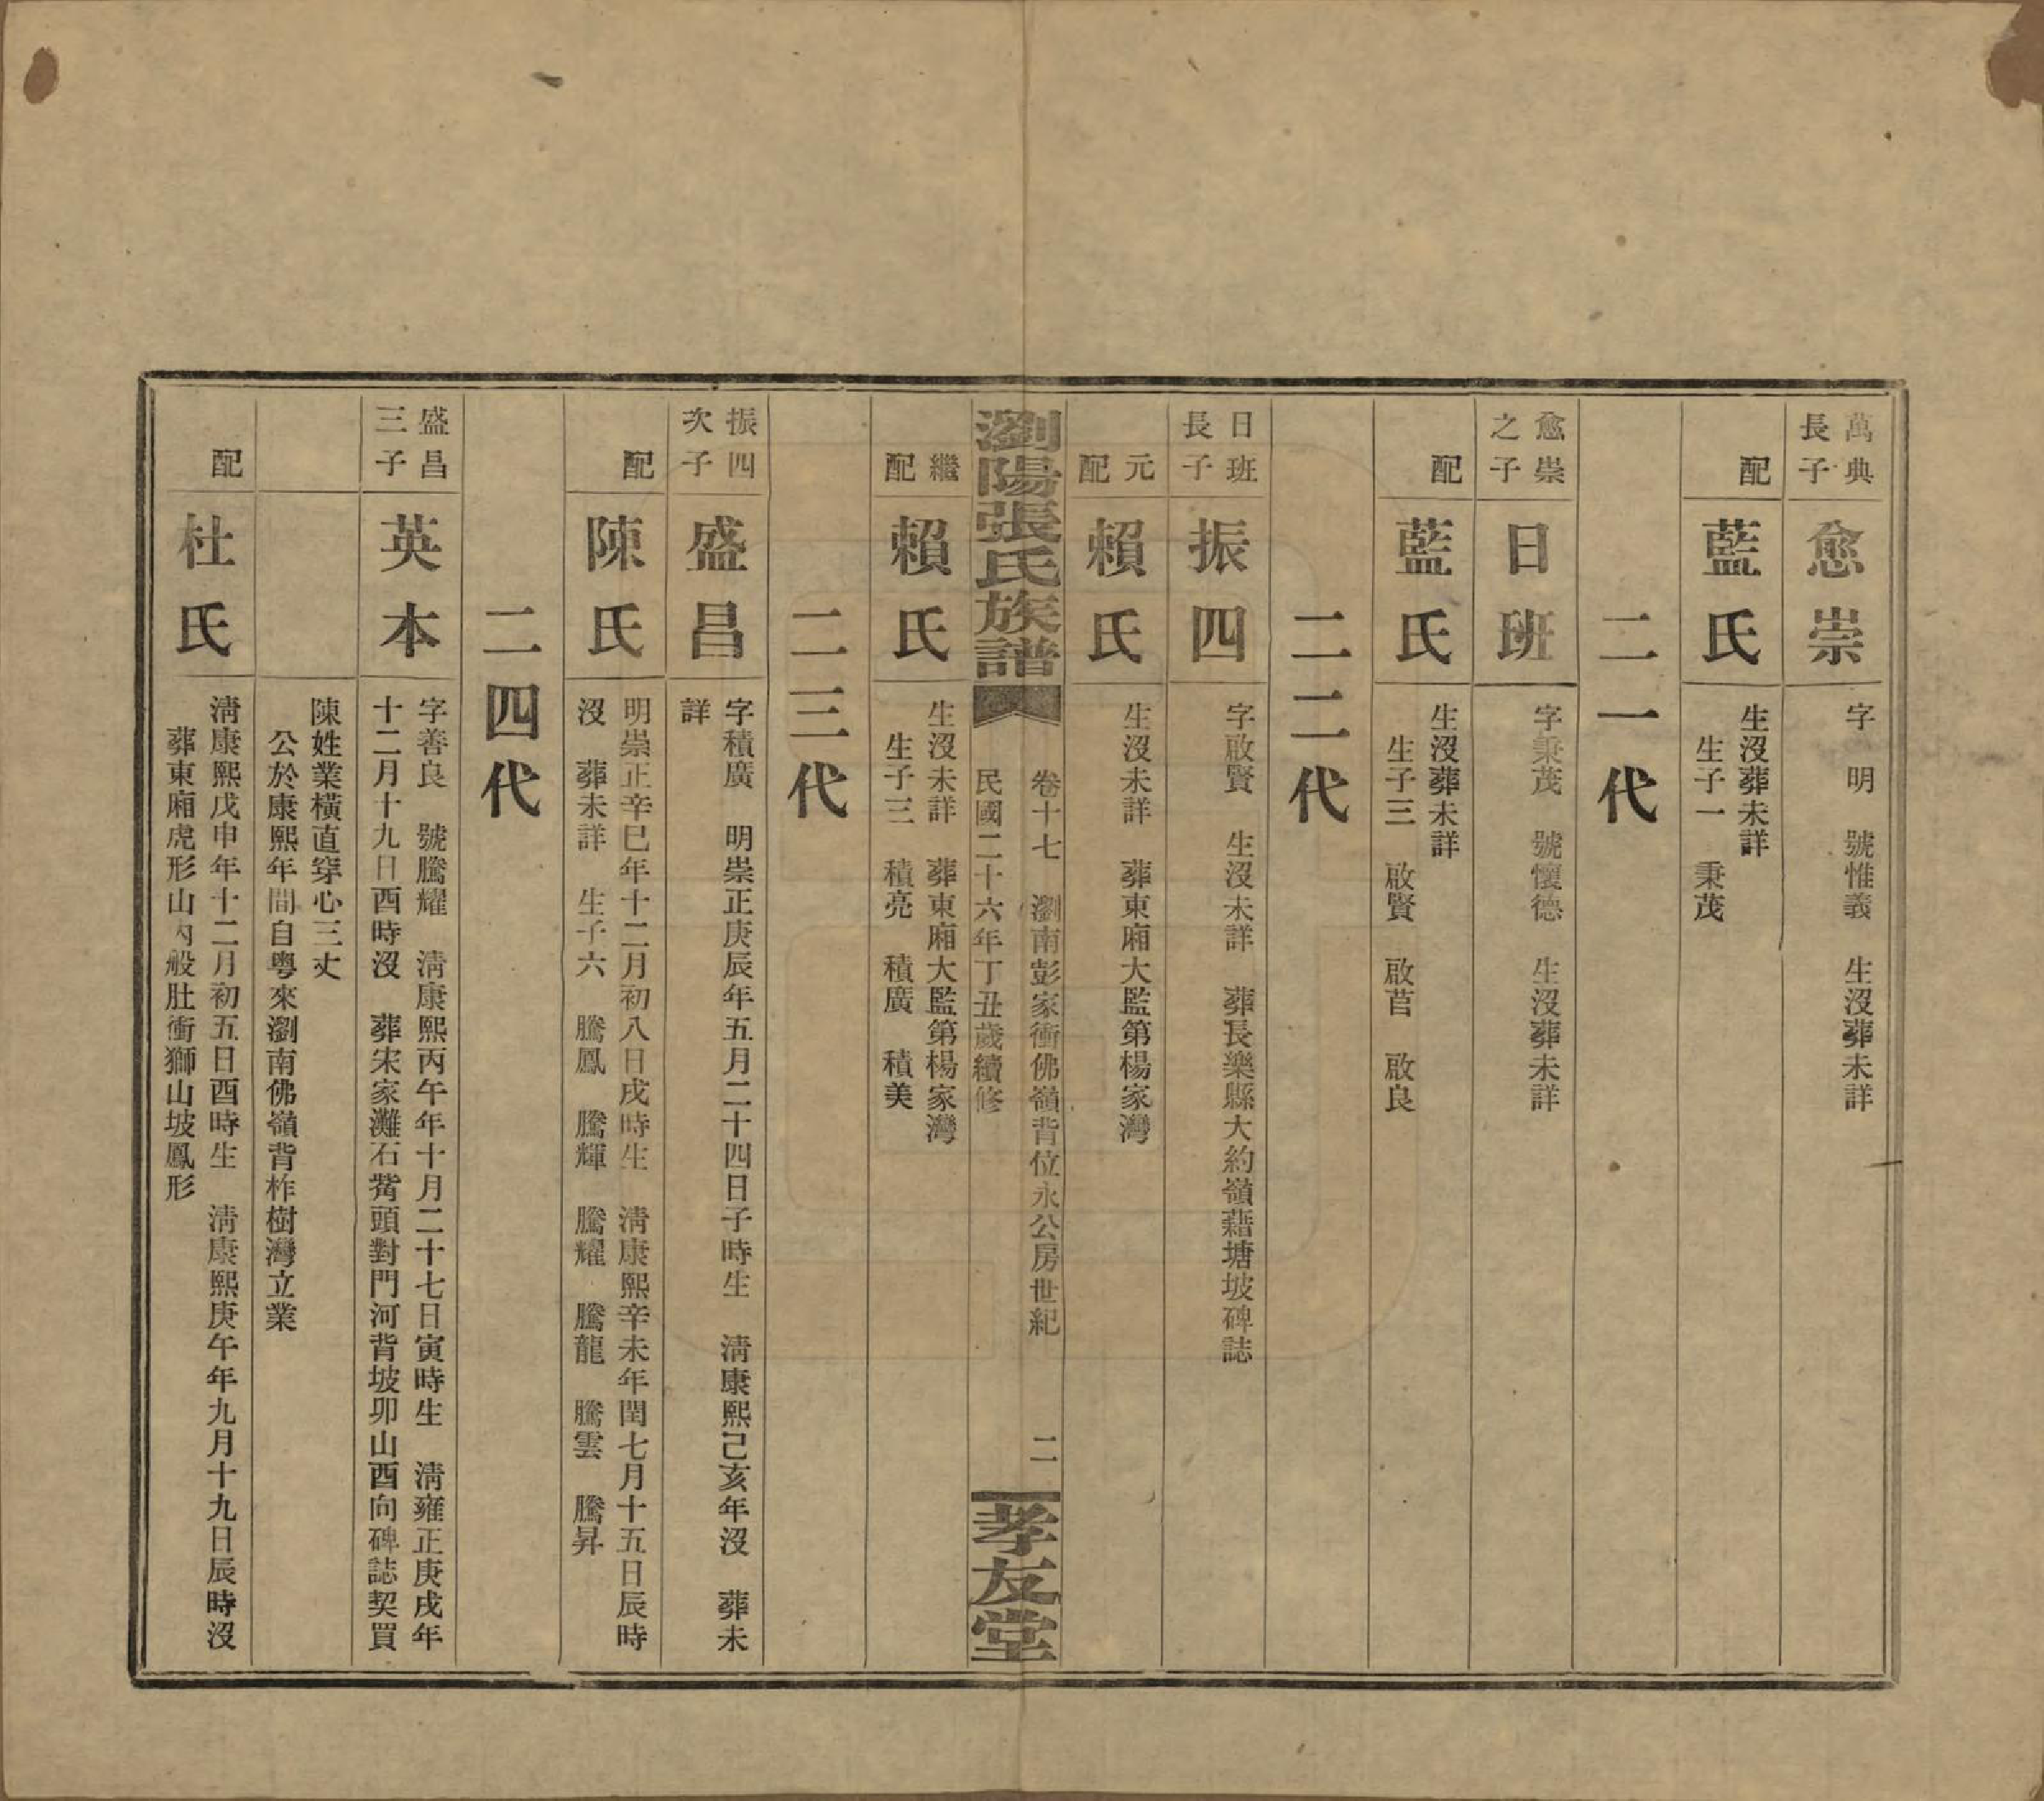 萬典
長子
愈崇
字　明　號惟義　生沒葬未詳
配
藍氏
生沒葬未詳
生子一　秉茂
二一代
愈崇
之子
日班
字秉茂　號懷德　生沒葬未詳
配
藍氏
生沒葬未詳
生子三　啟賢　啟莒　啟良
二二代
日班
長子
振四
字啟賢　生沒未詳　葬長樂縣大約嶺藉塘坡碑誌
元
配
賴氏
生沒未詳　葬東廂大監第楊家灣
瀏陽張氏族譜
卷十七　瀏南彭家衝佛嶺背位永公房世紀　二
民國二十六年丁丑歲續修
孝友堂
繼
配
賴氏
生沒未詳　葬東廂大監第楊家灣
生子三　積亮　積廣　積美
二三代
振四
次子
盛昌
字積廣　明崇正庚辰年五月二十四日子時生　淸康熙己亥年沒　葬未
詳
配
陳氏
明崇正辛巳年十二月初八日戌時生　淸康熙辛未年閏七月十五日辰時
沒　葬未詳　生子六　騰鳳　騰輝　騰耀　騰龍　騰雲　騰昇
二四代
盛昌
三子
英本
字善良　號騰耀　淸康熙丙午年十月二十七日寅時生　淸雍正庚戌年
十二月十九日酉時沒　葬宋家灘石觜頭對門河背坡卯山酉向碑誌契買
陳姓業橫直穿心三丈
公於康熙年間自粵來瀏南佛嶺背柞樹灣立業
配
杜氏
淸康熙戊申年十二月初五日酉時生　淸康熙庚午年九月十九日辰時沒
葬東廂虎形山內般肚衝獅山坡鳳形